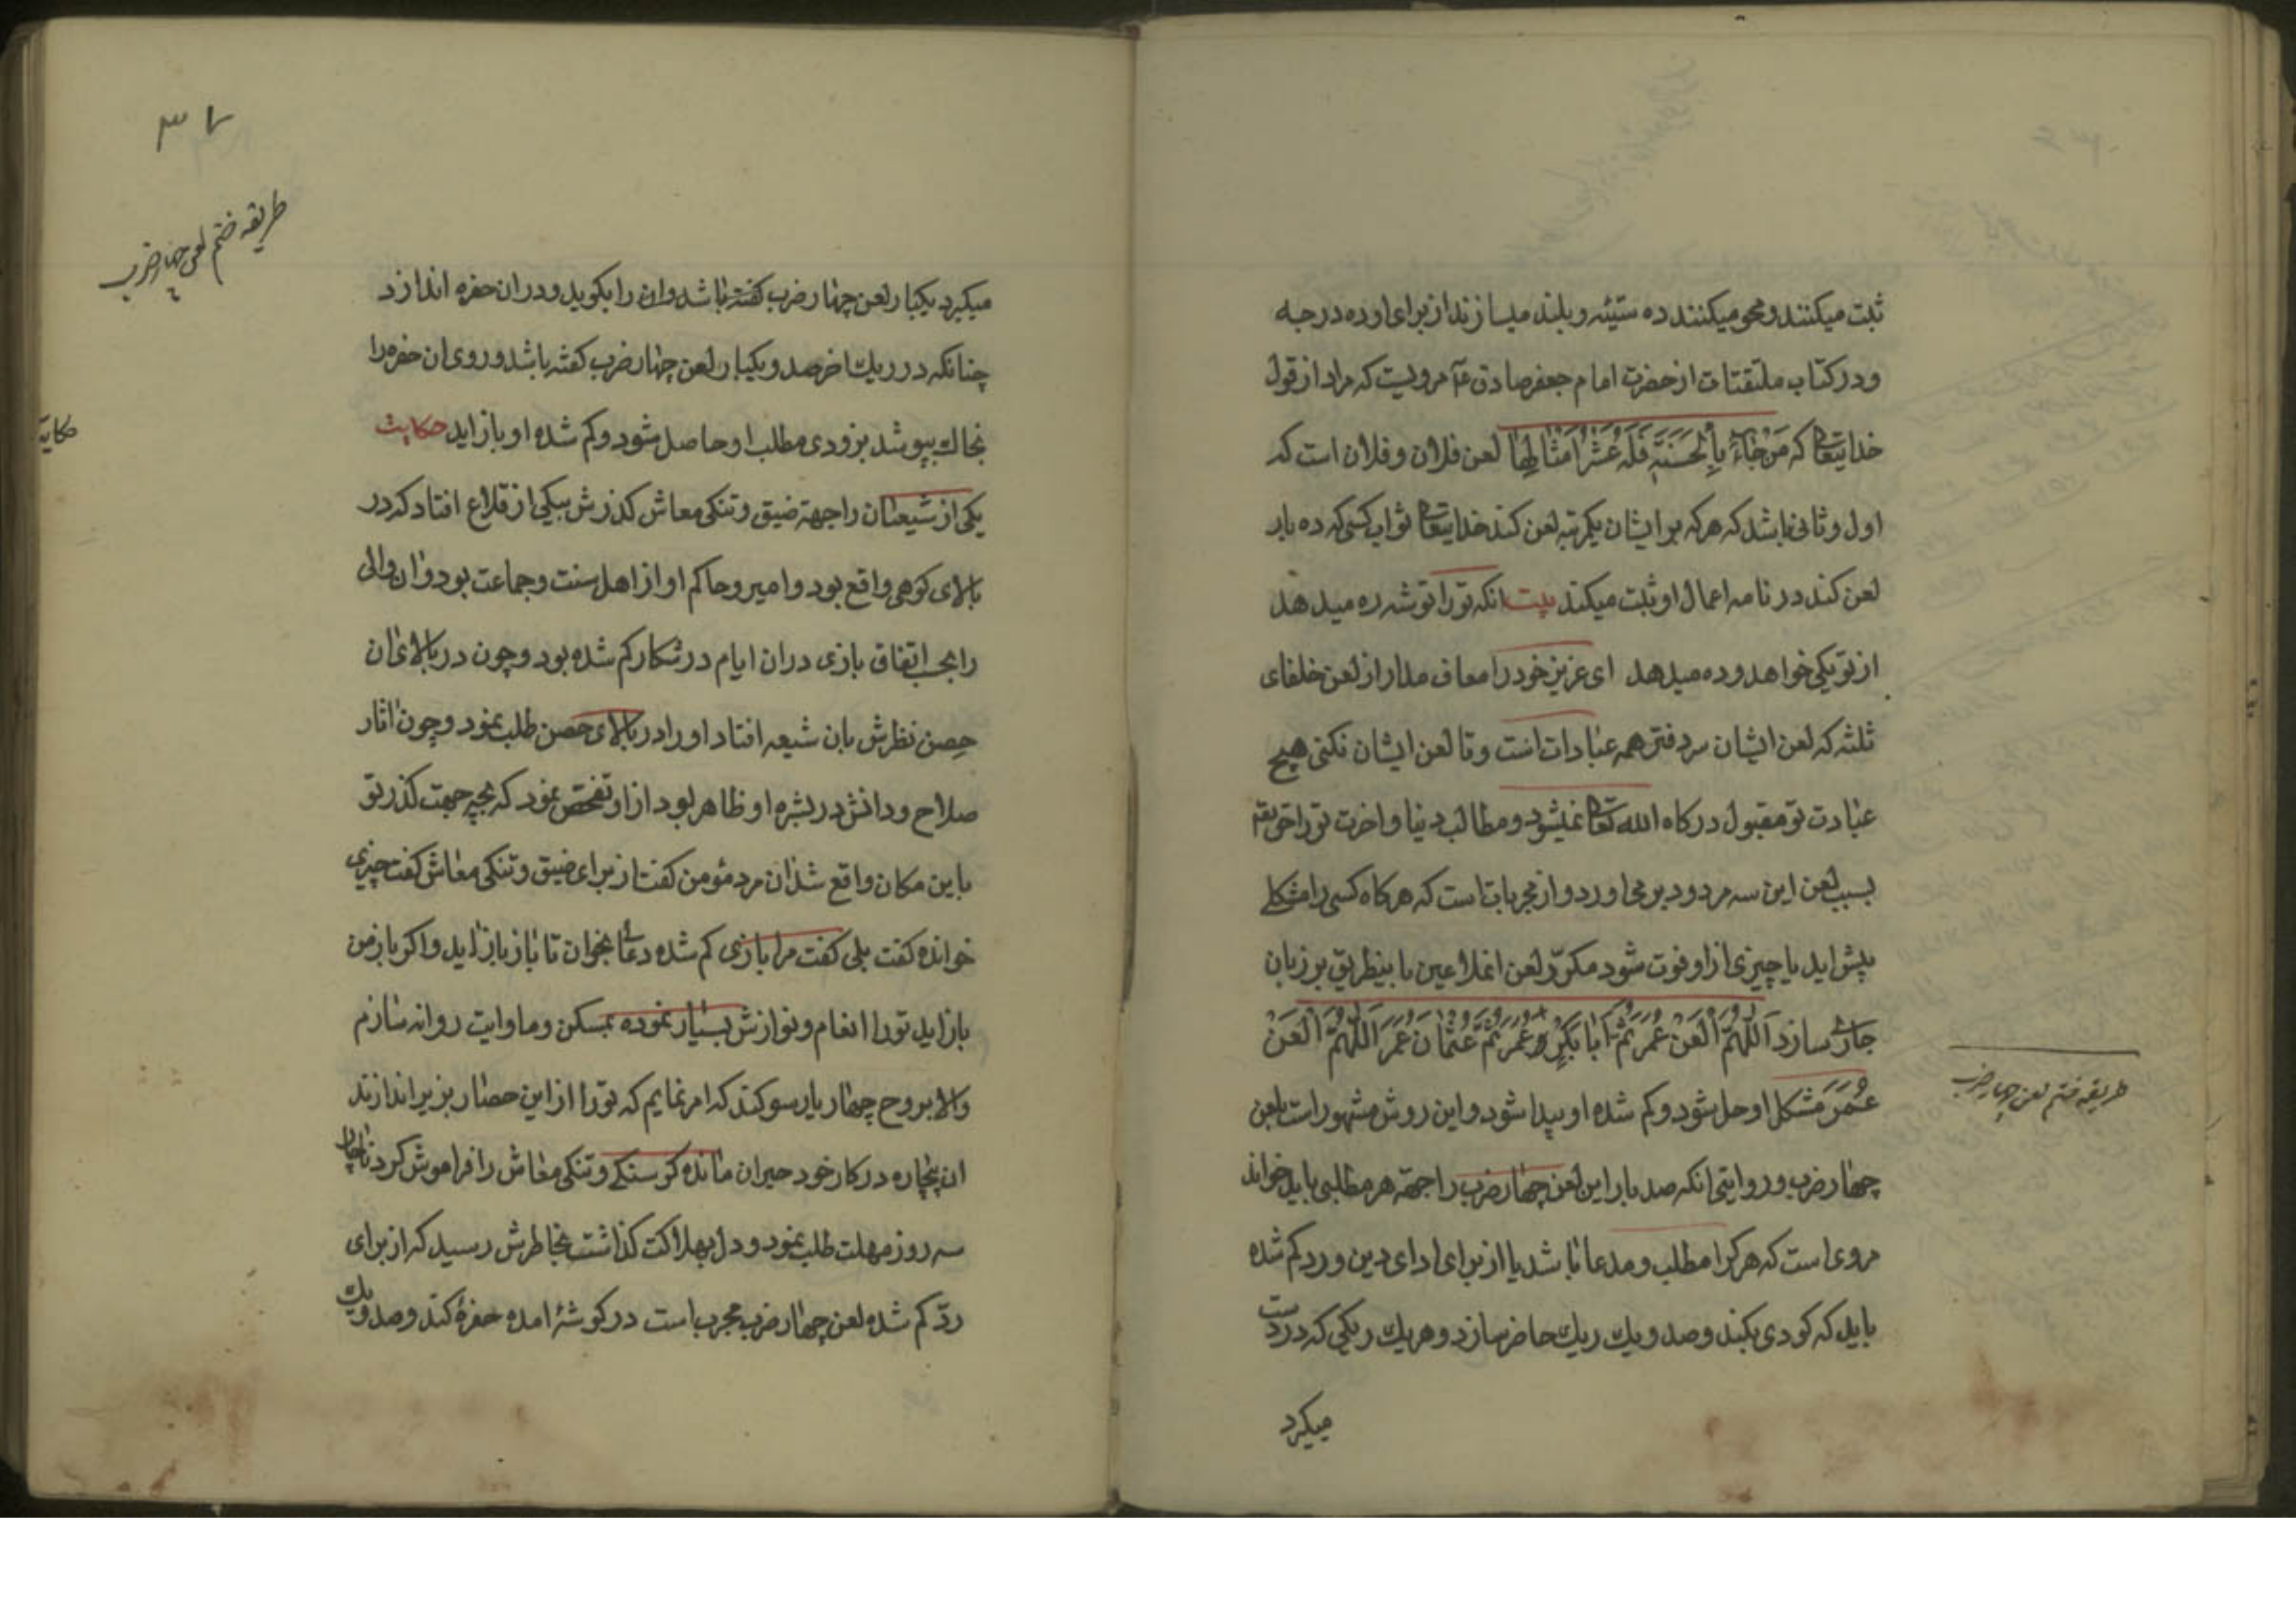 ثبت میکنند و محو میکنند ده سیّئه و بلند میسازند از برای او ده درجه
و در کتاب ملتقتات از حضرت امام جعفر صادق ع۴ مرویست که مراد از قول
خدایتعا که مَنْ جٰاءَ بِالْحَسَنَةِ فَلَهُ عَشْرُ اَمْثٰالِهٰا لعن فلان و فلان است که
اول و ثانی باشد که هر که بر ایشان یکمرتبه لعن کند خدایتعا ثواب کسی که ده بار
لعن کند در نامه اعمال او ثبت میکند بیت انکه تو را توشه ره میدهد
از تو یکی خواهد و ده میدهد ای عزیز خود را معاف مدار از لعن خلفای
ثلثه که لعن ایشان سر دفتر همه عبادات است و تا لعن ایشان نکنی هیچ
عبادت تو مقبول درکاه الله تعا نمیشود و مطالب دنیا و اخرت تو را حق تع
بسبب لعن این سه مردود بر می اورد و از مجربات است که هر کاه کسی را مشکلے
پیش اید یا چیزی از او فوت شود مکرّر لعن انملاعین باینطریق بر زبان
جاری سازد اَللّهُمَّ الْعَنْ عُمَرَ ثُمَّ اَبٰا بَکْرٍ وَ عُمَرَ ثُمَّ عُثْمٰانَ عُمَرَ اَللّهُمَّ الْعَنْ
عُمَرَ مشکل او حل شود و کم شده او پیدا شود و این روش مشهور است بلعن
چهار ضرب و روایتی انکه صد بار این لعن چهار ضرب را جهة هر مطلبی باید خواند
مروی است که هر کرا مطلب و مدعا باشد یا از برای ادای دین و رد کم شده
باید که کودی بکند و صد و یك ریك حاضر سازد و هر یك ریکی که در دست
میکیرد
طریقه ختم لعن چهار ضرب
۳۷
طریقه ختم لعن چهار ضرب
میکیرد یکبار لعن چهار ضرب کفته باشد و ان را بکوید و در ان حفره اندازد
چنانکه در ریك اخر صد و یکبار لعن چهار ضرب کفته باشد و روی ان حفره را
بخاك بپوشد بزودی مطلب او حاصل شود و کم شده او باز اید حکایت
حکایة
یکی از شیعیان را جهة ضیق و تنکی معاش کذرش بیکی از قلاع افتاد که در
بالای کوهی واقع بود و امیر و حاکم او از اهل سنت و جماعت بود و ان والی
را بحسب اتفاق بازی در ان ایام در شکار کم شده بود و چون در بالای ان
حصن نظرش بان شیعه افتاد او را در بالای حصن طلب نمود و چون اثار
صلاح و دانش در بشره او ظاهر بود از او تفحّص نمود که بچه جهت کذر تو
باین مکان واقع شد ان مرد مؤمن کفت از برای ضیق و تنکی معاش کفت چیزی
خوانده کفت بلی کفت مرا بازی کم شده دعائی بخوان تا باز باز اید و اکر باز من
باز اید تو را انعام و نوازش بسیار نموده بمسکن و ماوایت روانه سازم
والا بروح چهار یار سوکند که امر نمایم که تو را از این حصار بزیر اندازند
ان بیچاره در کار خود حیران مانده کرسنکے و تنکی معاش را فراموش کرد ناچار
سه روز مهلت طلب نمود و دل بهلاکت کذاشت بخاطرش رسید که از برای
ردّ کم شده لعن چهار ضرب مجرب است در کوشهٔ امده حفرهٔ کند و صد و یك